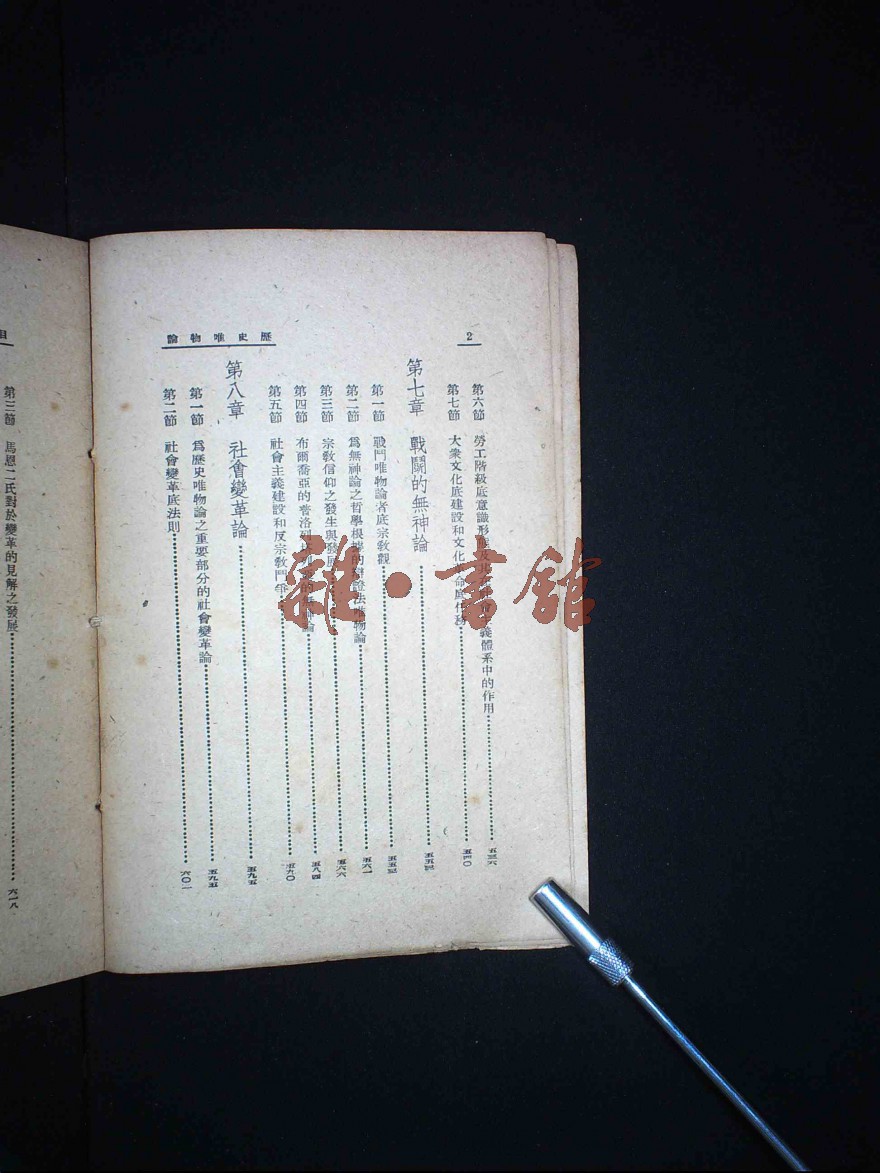 歷史唯物論
2
第六節 勞工階級底意識形態及其在社會主義體系中的作用 五三六
第七節 大衆文化底建設和文化革命底任務 五四〇
第七章 戰鬭的無神論 五五三
第一節 戰鬥唯物論者底宗敎觀 五五三
第二節 爲無神論之哲學根據的辯證法唯物論 五六一
第三節 宗敎信仰之發生與發展 五六六
第四節 布爾喬亞的普洛列 的無神論 五八四
第五節 社會主義建設和反宗敎鬥爭 五九〇
第八章 社會變革論 五九五
第一節 爲歷史唯物論之重要部分的社會變革論 五九五
第二節 社會變革底法則 六〇一
目
第三節 馬恩二氏對於變革的見解之發展 六一八
雜·書館